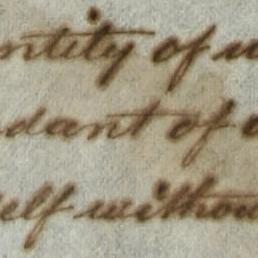 ntity of
dant of
elf withou